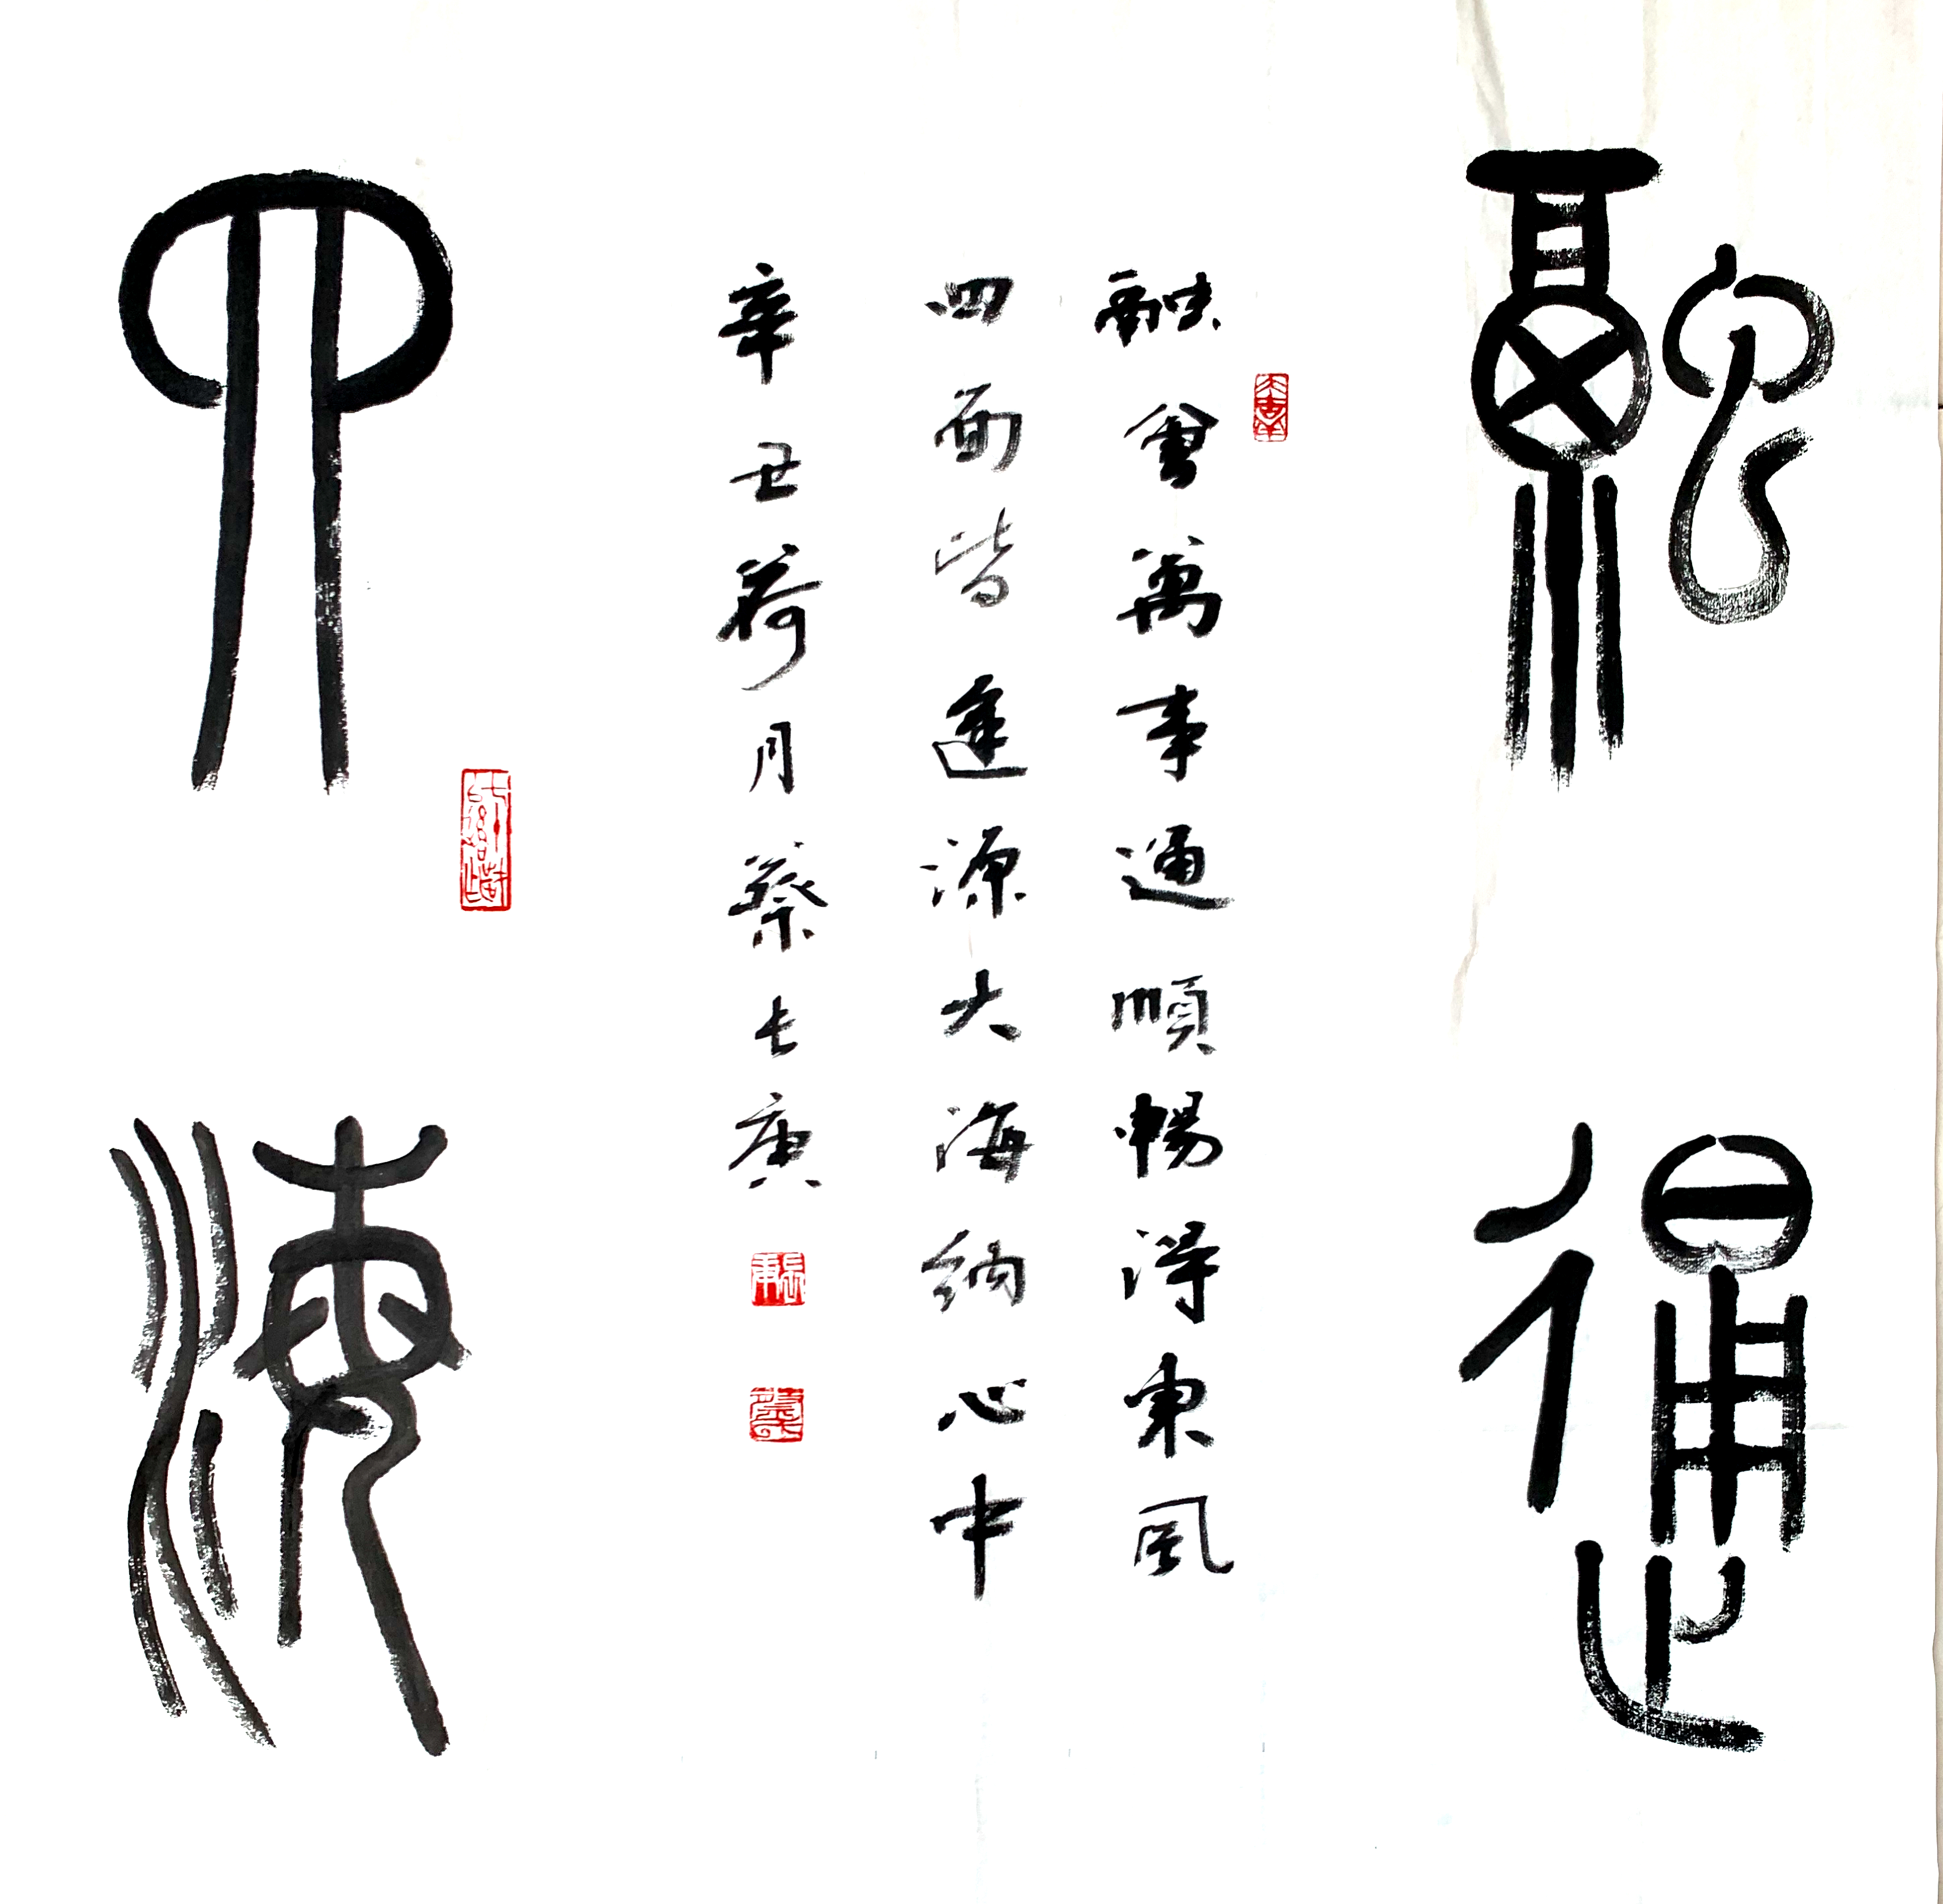 融通
融會萬事通順暢得東風
四面皆逢源大海納心中
辛丑荷月蔡長庚
四海